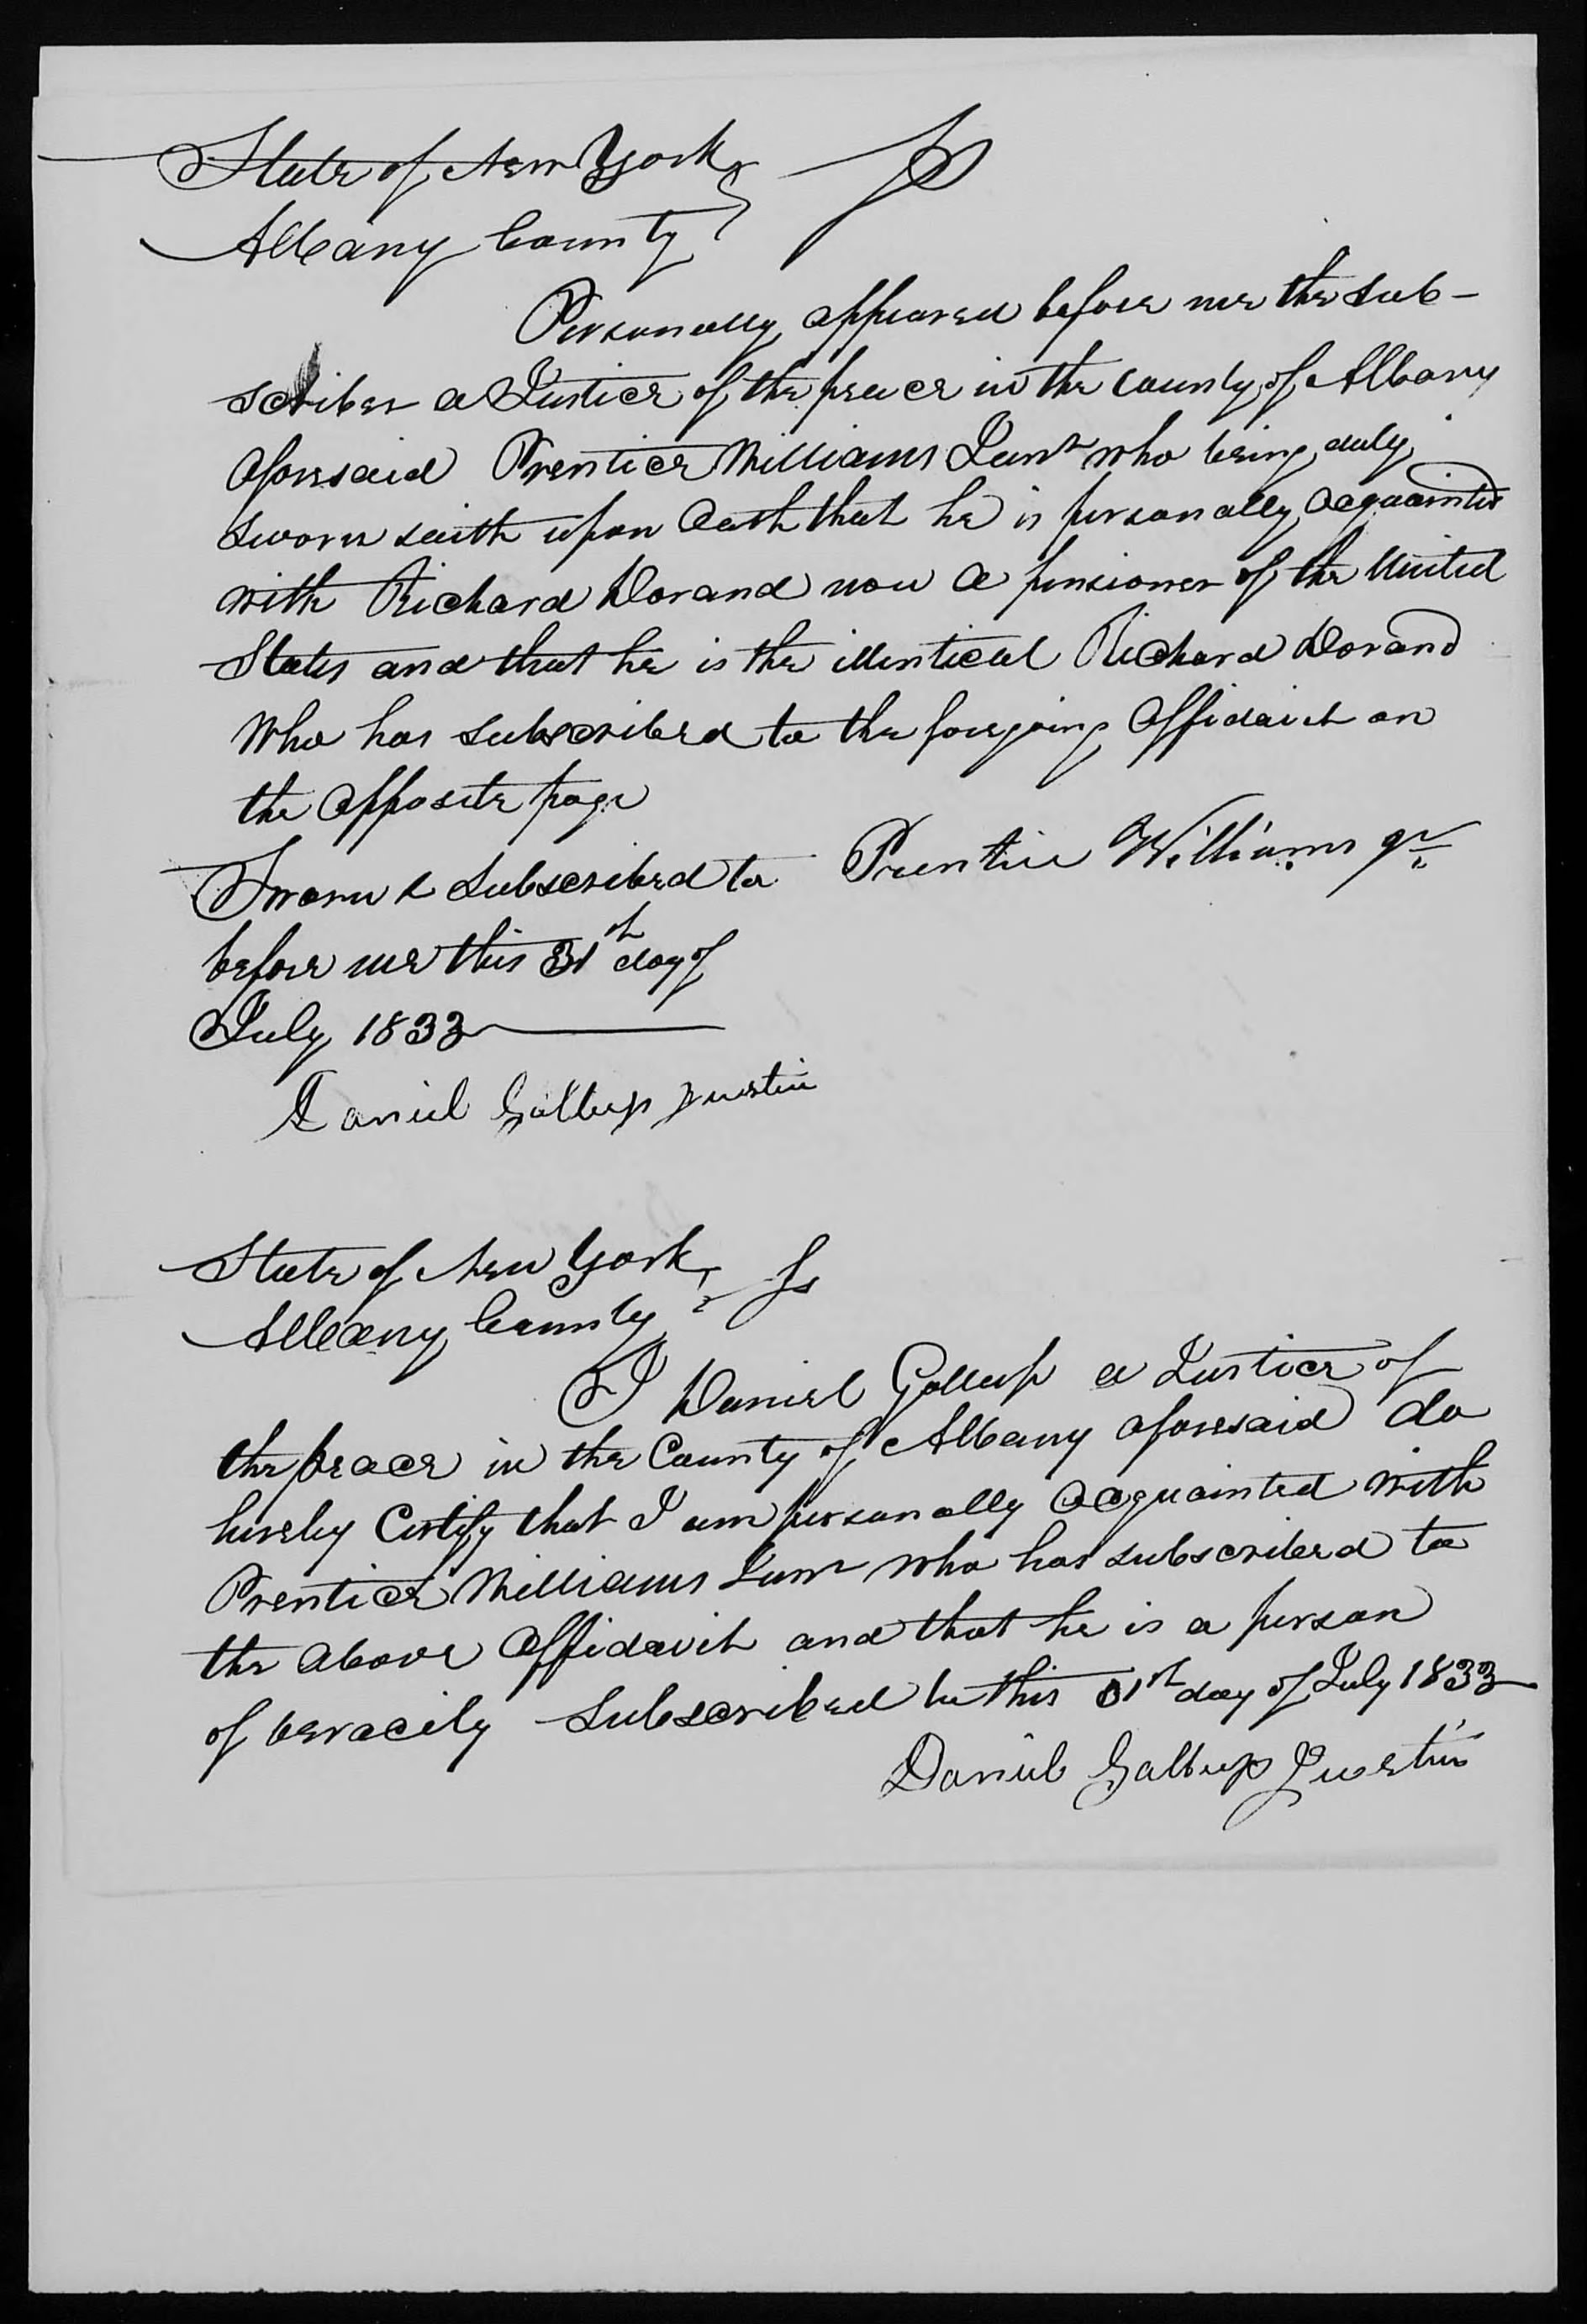 State of New York } ss
Albany County }
Personally appeared before me the sub-
scriber a Justice of the peace in the county of Albany
aforesaid Prentice Williams Junr who being duly
sworn saith upon Oath that he is personally acquainted
with Richard Dorand now a pensioner of the United
States and that he is the identical Richard Dorand
Who has subscribed to the foregoing Affidavit on
the opposite page
Sworn & Subscribed to Prentice Williams Jr
before me this 31th day of
July 1833
Daniel Gallup Justice
State of New York } ss
Albany County }
I Daniel Gallup a Justice of
the peace in the County of Albany aforesaid do
hereby Certify that I am personally acquainted with
Prentice Williams Junr who has subscribed to
the above Affidavit and that he is a person
of veracity Subscribed to this 31th day of July 1833
Daniel Gallup Justice